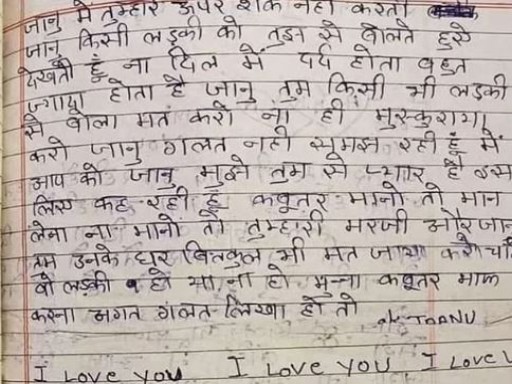 जानु में तुम्हारे ऊपर शक नही करती
जानु किसी लडकी को तुझ से बोलते हुऐ
देखती हूँ ना दिल में दर्द होता बहुत
ज्यादा होता है जानु तुम किसी भी लडकी
से बोला मत करो ना ही मुस्कुराया
करो जानु गलत नही समझ रही हूँ में
आप को जानु मुझे तुम से प्यार है इस
लिए कह रही हूँ कबूतर मानो तो मान
लेना ना मानो तो तुम्हारी मरजी और जानु
तुम उनके घर बिलकुल भी मत जाया करो चाहे
वो लडकी हो या ना हो मुन्ना कबूतर माफ
करना अगत गलत लिखा हो तो
I Love you I Love you I Love